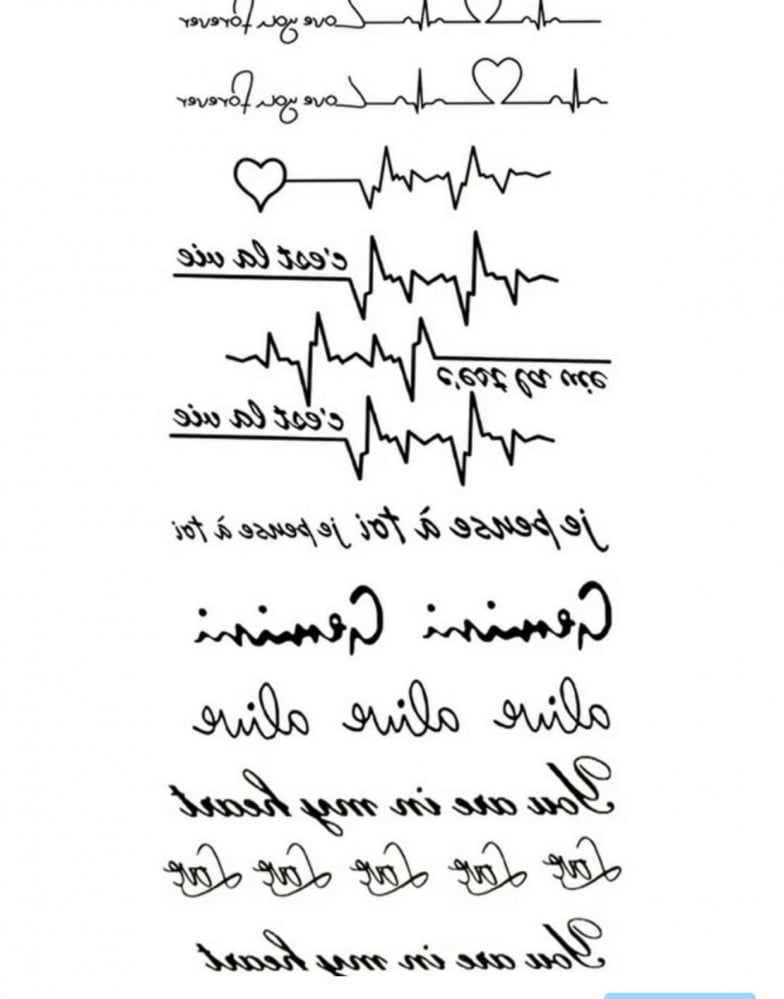 Love you forever
Love you forever
c'est la vie
c'est la vie
c'est la vie
je pense à toi je pense à toi
Gemini Gemini
alive alive alive
You are in my heart
Love Love Love Love Love
You are in my heart